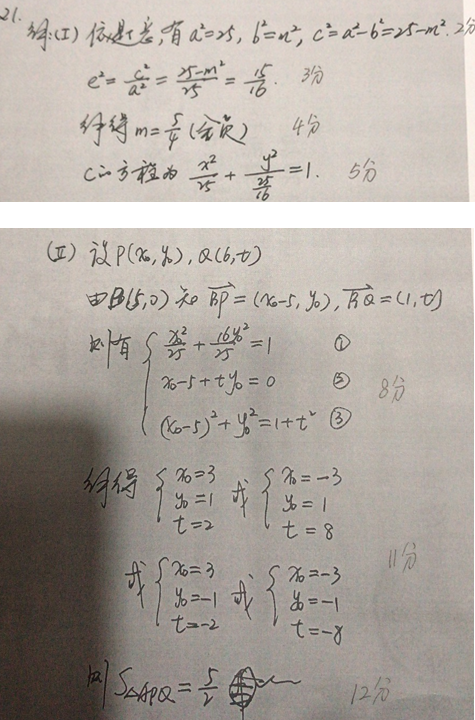 21.
解:(I) 依题意,有 a²=25, b²=m², c²=a²-b²=25-m². 2分
e²= c²/a² = (25-m²)/25 = 15/16. 3分
解得 m=5/4 (舍负) 4分
C的方程为 x²/25 + y²/(25/16) =1. 5分
(II) 设P(x₀,y₀), Q(6,t)
由B(5,0)知 BP→=(x₀-5, y₀), BQ→=(1,t)
则有 { x₀²/25 + 16y₀²/25 =1 ①
x₀-5+ty₀=0 ②
(x₀-5)²+y₀²=1+t² ③
8分
解得 { x₀=3 y₀=1 t=2 或 { x₀=-3 y₀=1 t=8
11分
或 { x₀=3 y₀=-1 t=-2 或 { x₀=-3 y₀=-1 t=-8
则 S△APQ = 5/2 12分